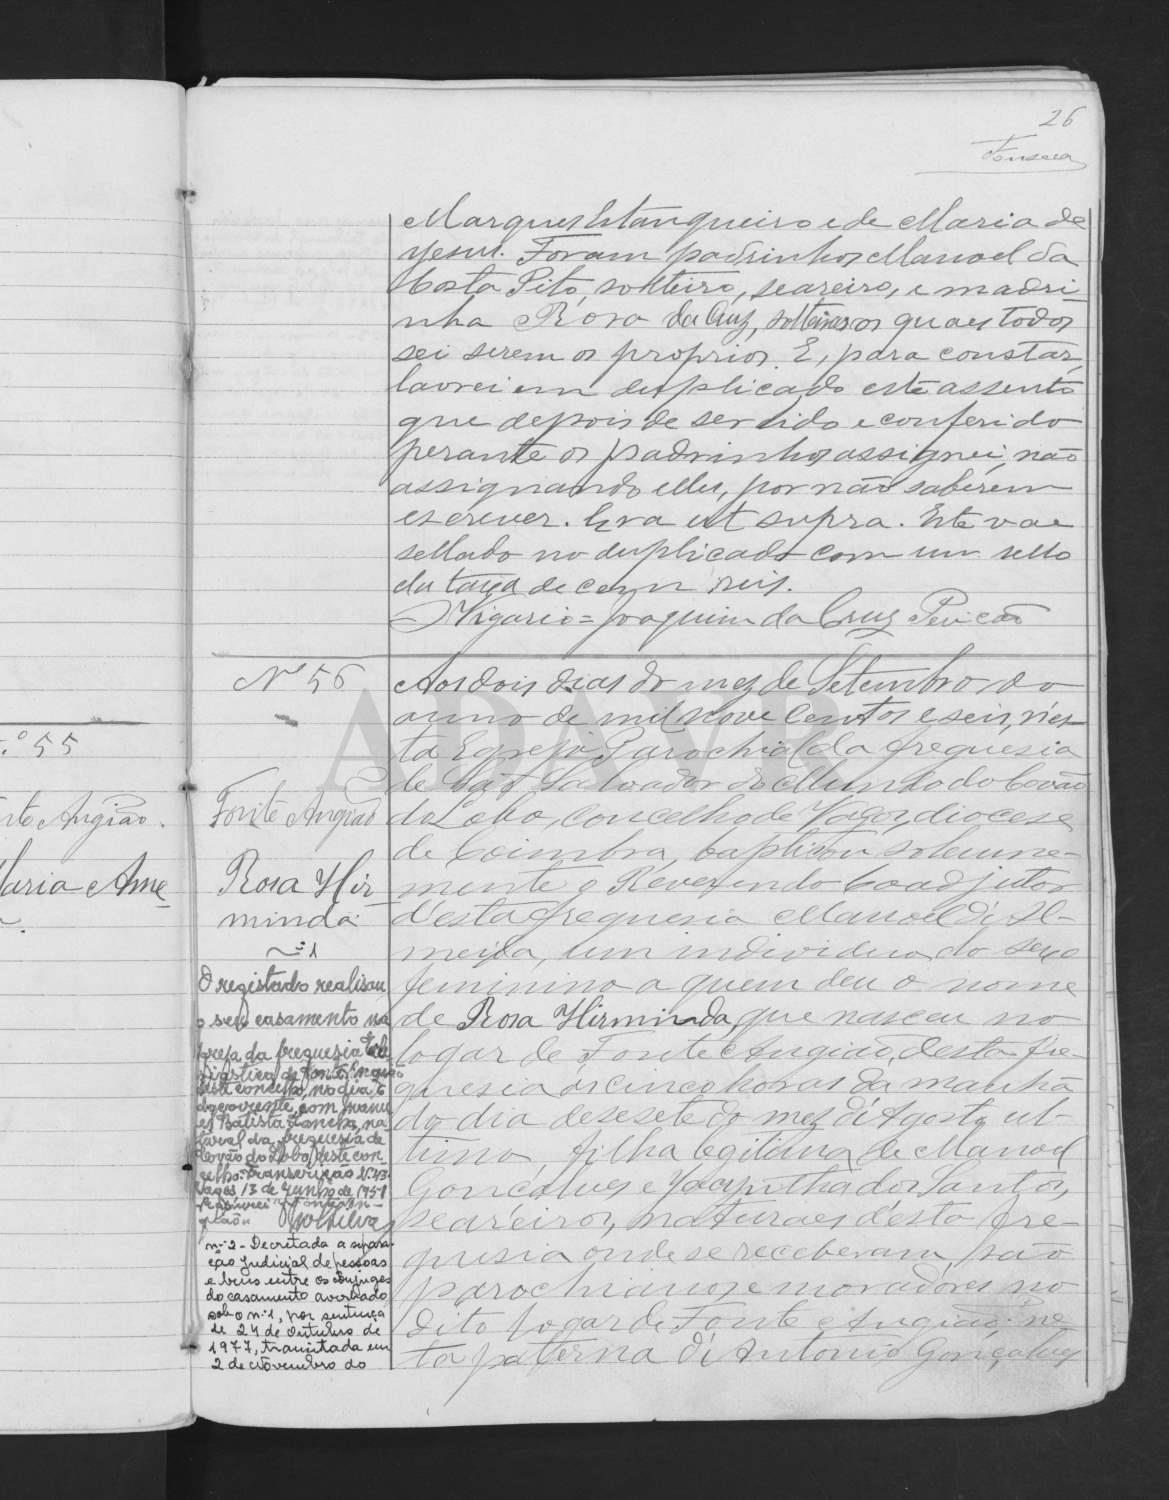 26
Fonseca
Marques Estanqueiro e de Maria de
Jesus. Foram padrinhos Manoel da
Costa Pito, solteiro, seareiro, e madri-
nha Rosa da Cruz, solteira os quaes todos
sei serem os proprios. E, para constar,
lavrei em duplicado este assento
que depois de ser lido e conferido
perante os padrinhos assignei, não
assignando elles, por não saberem
escrever. Era ut supra. Este vae
sellado no duplicado com um sello
da taxa de cem reis.
O Vigario = Joaquim da Cruz
Nº 56
Aos dois dias do mez de Setembro do
anno de mil nove centos e seis, n'es-
ta Egreja Parochial da freguesia
de São Salvador do Mundo do Covão
do Lobo, concelho de Vagos, diocese
de Coimbra, baptisou solemne-
mente o Reverendo Coadjutor
d'esta freguesia Manoel d'Al-
meida, um individuo do sexo
feminino a quem deu o nome
de Rosa Hirminda, que nasceu no
logar de Fonte Angião, desta fre-
guesia ás cinco horas da manhã
do dia desesete do mez d'Agosto ul-
timo, filha legitima de Manoel
Gonçalves e Jacyntha dos Santos,
seareiros, naturaes d'esta fre-
guesia onde se receberam são
parochianos e moradores no
dito logar de Fonte Angião: ne-
ta paterna d'Antonio Gonçalves
Fonte Angião
Rosa Hir
minda
nº 1
O registado realisou
o seu casamento na
Igreja da freguesia
de Fonte Angião
deste concelho, no dia 6
do corrente, com Manu
el Batista, na
tural da freguesia de
Covão do Lobo, deste con-
celho. Transcrição N.º 43.
Vagos, 13 de Junho de 1951
Silva
nº 2 - Decretada a separa-
ção judicial de pessoas
e bens entre os cônjuges
do casamento averbado
sob o nº 1, por sentença
de 24 de Outubro de
1977, transitada em
2 de Novembro do
.º 55
nte Angião.
Maria Ame
ADAVR